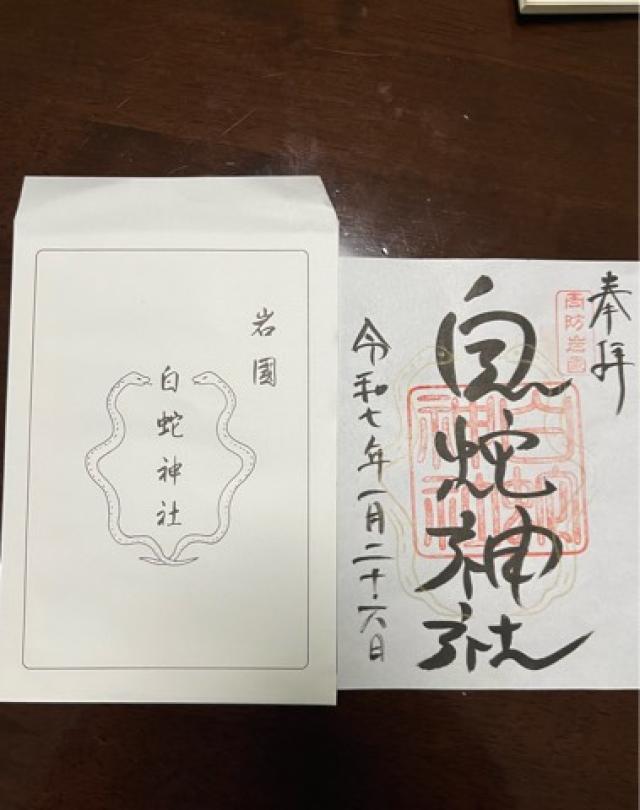 岩國
白蛇神社
奉拝
周防岩國
白蛇神社
白蛇神社
令和七年一月二十六日